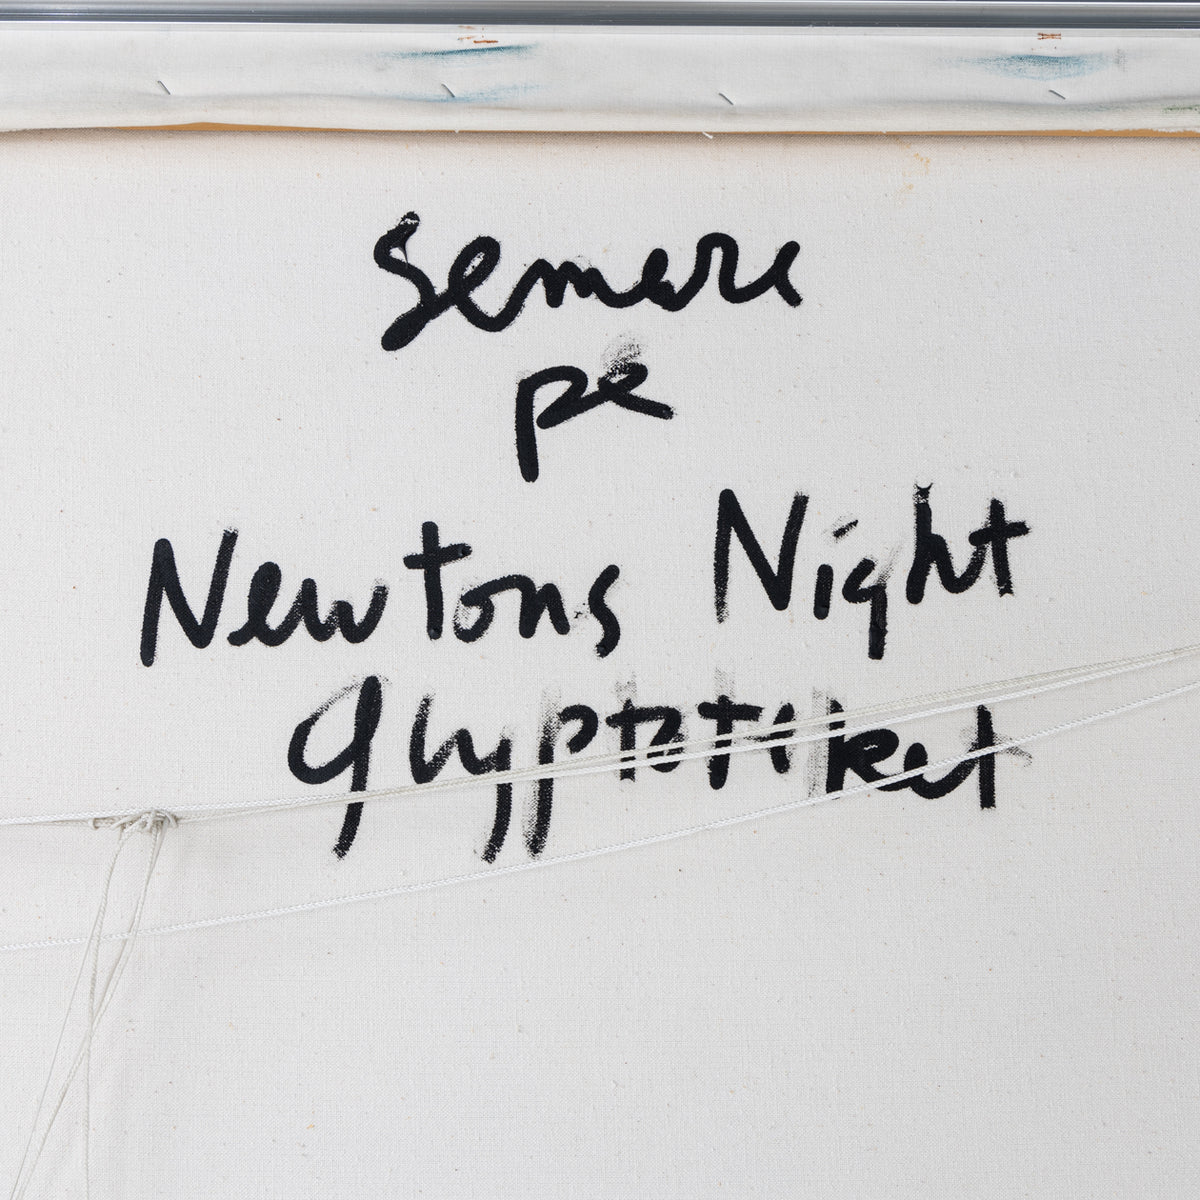 Semere
pe
Newtons Night
Glyptoteket